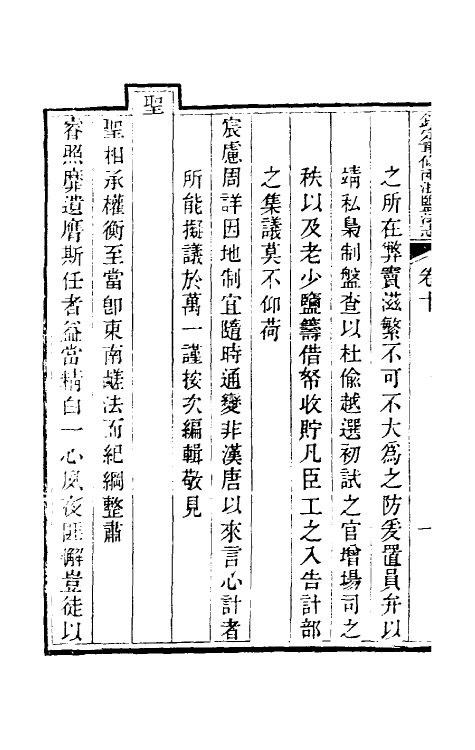 欽定重修兩浙鹽法志 卷十 一
之所在弊竇滋繁不可不大為之防爰置員弁以
靖私梟制盤查以杜偷越選初試之官增場司之
秩以及老少鹽籌借帑收貯凡臣工之入告計部
之集議莫不仰荷
宸慮周詳因地制宜隨時通變非漢唐以來言心計者
所能擬議於萬一謹按次編輯敬見
聖
聖相承權衡至當卽東南鹺法而紀綱整肅
睿照靡遺膺斯任者益當精白一心夙夜匪懈豈徒以